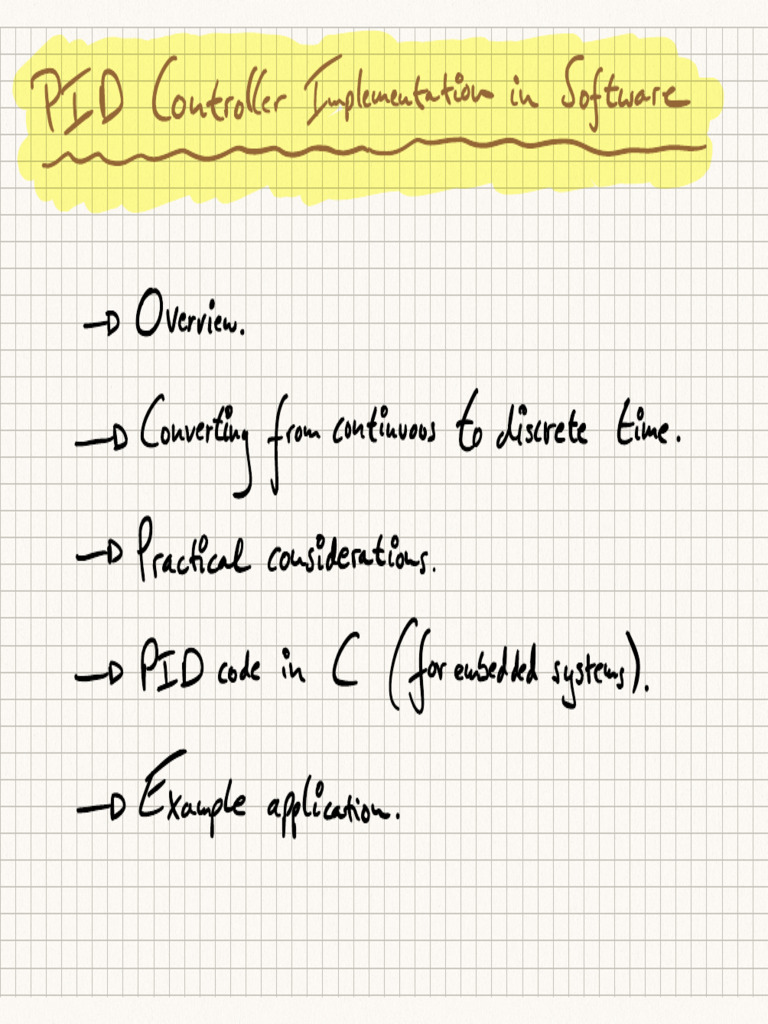 PID Controller Implementation in Software
→ Overview.
→ Converting from continuous to discrete time.
→ Practical considerations.
→ PID code in C (for embedded systems).
→ Example application.